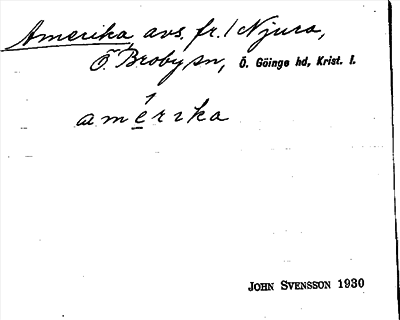 Amerika, avs. fr. / Njura,
Ö. Broby sn, Ö. Göinge hd, Krist. l.
amerika
JOHN SVENSSON 1930